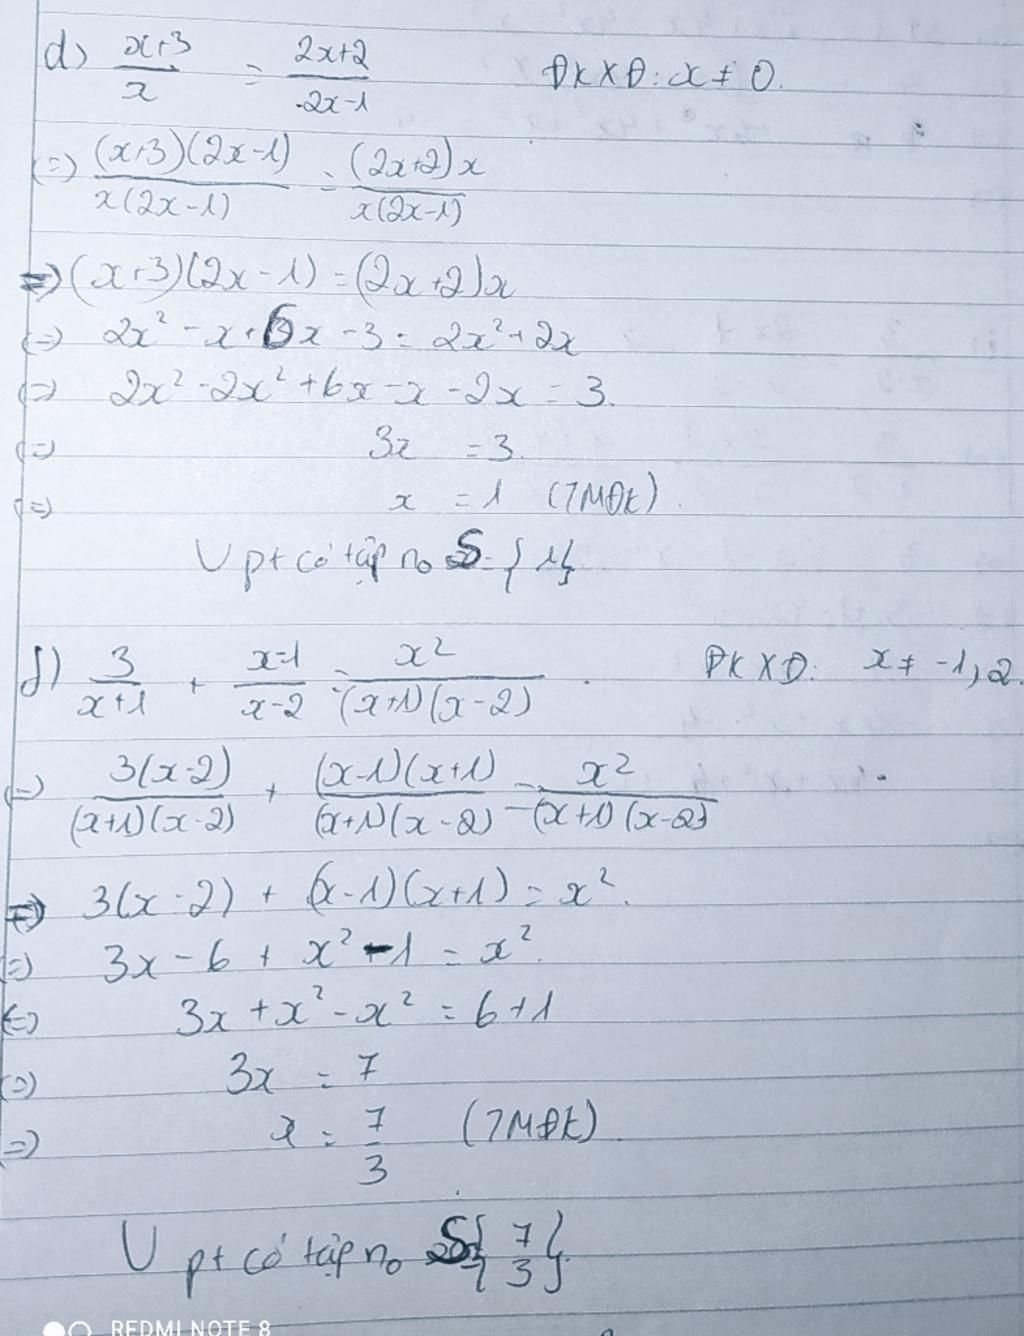 d) (x+3)/x = (2x+2)/(2x-1) ĐKXĐ: x ≠ 0.
(=) ((x+3)(2x-1))/(x(2x-1)) = ((2x+2)x)/(x(2x-1))
=> (x+3)(2x-1) = (2x+2)x
(=) 2x² - x + 6x - 3 = 2x² + 2x
(=) 2x² - 2x² + 6x - x - 2x = 3.
(=) 3x = 3.
(=) x = 1 (TMĐK).
V pt có tập no S = {1}
f) 3/(x+1) + (x-1)/(x-2) = x²/((x+1)(x-2)). ĐKXĐ: x ≠ -1, 2.
(=) (3(x-2))/((x+1)(x-2)) + ((x-1)(x+1))/((x+1)(x-2)) = x²/((x+1)(x-2))
=> 3(x-2) + (x-1)(x+1) = x².
(=) 3x - 6 + x² - 1 = x².
(=) 3x + x² - x² = 6+1
(=) 3x = 7
(=) x = 7/3 (TMĐK).
V pt có tập no S {7/3}.
REDMI NOTE 8